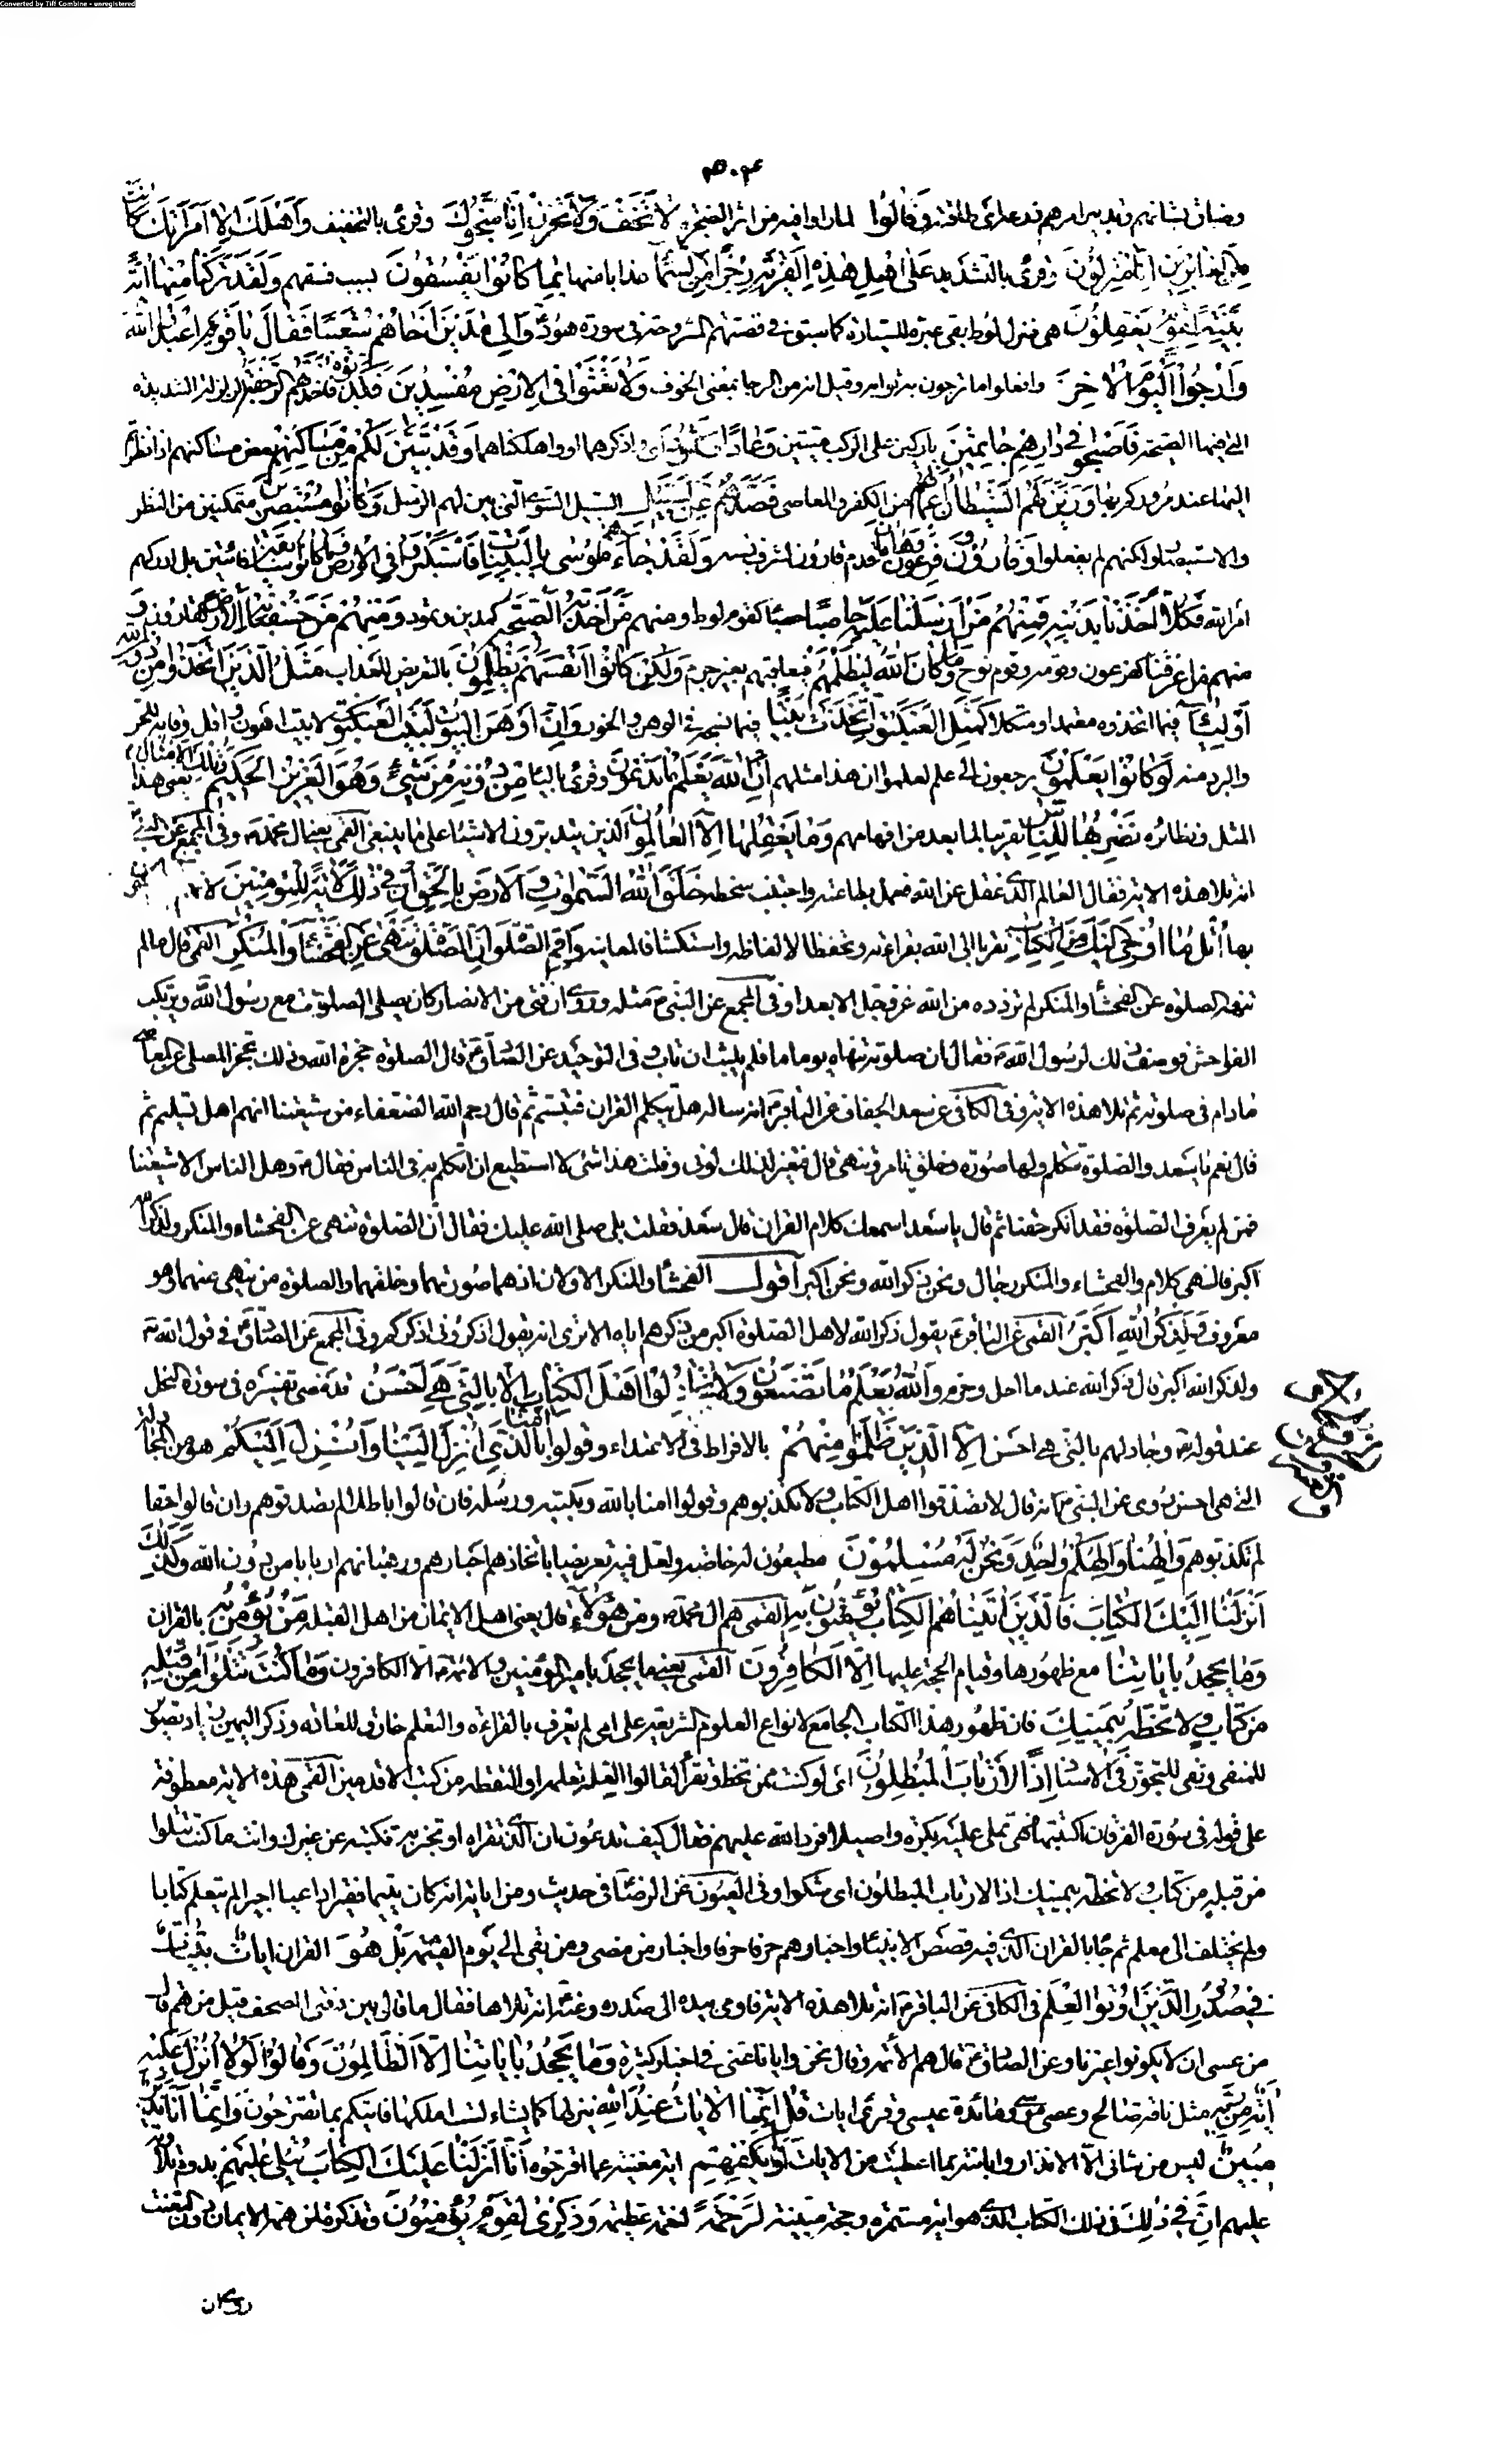 Converted by Tiff Combine - unregistered
٥٠٤
وضاق بشانهم وتدبير امرهم ذرعه اى طاقته وَقَالُوا لما راوا فيه من اثر الضجر لَا تَخَفْ وَلَا تَحْزَنْ إِنَّا مُنَجُّوكَ وقرئ بالتخفيف وَأَهْلَكَ إِلَّا امْرَأَتَكَ كَانَتْ
مِنَ الْغَابِرِينَ إِنَّا مُنْزِلُونَ وقرئ بالتشديد عَلَى أَهْلِ هَذِهِ الْقَرْيَةِ رِجْزًا مِنَ السَّمَاءِ عذابا منها بِمَا كَانُوا يَفْسُقُونَ بسبب فسقهم وَلَقَدْ تَرَكْنَا مِنْهَا آيَةً
بَيِّنَةً لِقَوْمٍ يَعْقِلُونَ هى منزل لوط بقى عبرة للسيارة كما سبق فى قصتهم المشروحة فى سورة هود وَإِلَى مَدْيَنَ أَخَاهُمْ شُعَيْبًا فَقَالَ يَا قَوْمِ اعْبُدُوا اللَّهَ
وَارْجُوا الْيَوْمَ الْآخِرَ وافعلوا ما ترجون به ثوابه وقيل انه من الرجاء بمعنى الخوف وَلَا تَعْثَوْا فِي الْأَرْضِ مُفْسِدِينَ فَكَذَّبُوهُ فَأَخَذَتْهُمُ الرَّجْفَةُ الزلزلة الشديدة
التى فيها الصيحة فَأَصْبَحُوا فِي دَارِهِمْ جَاثِمِينَ باركين على الركب ميتين وَعَادًا وَثَمُودَ اى واذكرهما او واهلكناهما وَقَدْ تَبَيَّنَ لَكُمْ مِنْ مَسَاكِنِهِمْ بعض مساكنهم اذا نظرتم
اليها عند مروركم بها وَزَيَّنَ لَهُمُ الشَّيْطَانُ أَعْمَالَهُمْ من الكفر والمعاصى فَصَدَّهُمْ عَنِ السَّبِيلِ السبيل السوى الذى بين لهم الرسل وَكَانُوا مُسْتَبْصِرِينَ متمكنين من النظر
والاستبصار ولكنهم لم يفعلوا وَقَارُونَ وَفِرْعَوْنَ وَهَامَانَ قدم قارون لشرف نسبه وَلَقَدْ جَاءَهُمْ مُوسَى بِالْبَيِّنَاتِ فَاسْتَكْبَرُوا فِي الْأَرْضِ وَمَا كَانُوا سَابِقِينَ فائتين بل ادركهم
امر الله فَكُلًّا أَخَذْنَا بِذَنْبِهِ فَمِنْهُمْ مَنْ أَرْسَلْنَا عَلَيْهِ حَاصِبًا حصباء كقوم لوط ومنهم مَنْ أَخَذَتْهُ الصَّيْحَةُ كمدين وثمود وَمِنْهُمْ مَنْ خَسَفْنَا بِهِ الْأَرْضَ كقارون وَ
منهم من اغرقنا كفرعون وقومه وقوم نوح وَمَا كَانَ اللَّهُ لِيَظْلِمَهُمْ فيعاقبهم بغير جرم وَلَكِنْ كَانُوا أَنْفُسَهُمْ يَظْلِمُونَ بالتعريض للعذاب مَثَلُ الَّذِينَ اتَّخَذُوا مِنْ دُونِ اللَّهِ
أَوْلِيَاءَ فيما اتخذوه معتمدا ومتكلا كَمَثَلِ الْعَنْكَبُوتِ اتَّخَذَتْ بَيْتًا فيما نسجه فى الوهن والخور وَإِنَّ أَوْهَنَ الْبُيُوتِ لَبَيْتُ الْعَنْكَبُوتِ لا بيت اهون واقل وقاية للحر
والبرد منه لَوْ كَانُوا يَعْلَمُونَ يرجعون الى علم لعلموا ان هذا مثلهم إِنَّ اللَّهَ يَعْلَمُ مَا تَدْعُونَ وقرئ بالياء مِنْ دُونِهِ مِنْ شَيْءٍ وَهُوَ الْعَزِيزُ الْحَكِيمُ وَتِلْكَ الْأَمْثَالُ يعنى هذا
المثل ونظائره نَضْرِبُهَا لِلنَّاسِ تقريبا لما بعد من افهامهم وَمَا يَعْقِلُهَا إِلَّا الْعَالِمُونَ الذين يتدبرون الاشياء على ما ينبغى القمى يعنى آل محمد وفى المجمع عن النبى
انه تلا هذه الاية فقال العالم الذى عقل عن الله فعمل بطاعته واجتنب سخطه خَلَقَ اللَّهُ السَّمَاوَاتِ وَالْأَرْضَ بِالْحَقِّ إِنَّ فِي ذَلِكَ لَآيَةً لِلْمُؤْمِنِينَ لانهم
بها اتْلُ مَا أُوحِيَ إِلَيْكَ مِنَ الْكِتَابِ تقربا الى الله بقراءته وتحفظا لالفاظه واستكشافا لمعانيه وَأَقِمِ الصَّلَاةَ إِنَّ الصَّلَاةَ تَنْهَى عَنِ الْفَحْشَاءِ وَالْمُنْكَرِ القمى قال من لم
تنهه الصلوة عن الفحشاء والمنكر لم تزدده من الله عز وجل الا بعدا وفى المجمع عن النبى مثله وروى ان فتى من الانصار كان يصلى الصلوة مع رسول الله ويرتكب
الفواحش فوصف ذلك لرسول الله فقال ان صلوته تنهاه يوما ما فلم يلبث ان تاب وفى التوحيد عن الصادق قال الصلوة حجزة الله وذلك تحجز المصلى عن المعاصى
ما دام فى صلوته ثم تلا هذه الاية وفى الكافى عن سعد الخفاف عن الباقر انه ساله هل يتكلم القران فتبسم ثم قال رحم الله الضعفاء من شيعتنا انهم اهل تسليم ثم
قال نعم يا سعد والصلوة تتكلم ولها صورة وخلق تامر وتنهى قال فتغير لذلك لونى وقلت هذا شئ لا استطيع ان اتكلم به فى الناس فقال وهل الناس الا شيعتنا
فمن لم يعرف الصلوة فقد انكر حقنا ثم قال يا سعد اسمعك كلام القران قال سعد فقلت بلى صلى الله عليك فقال ان الصلوة تنهى عن الفحشاء والمنكر ولذكر الله
اكبر فالنهى كلام والفحشاء والمنكر رجال ونحن ذكر الله ونحن اكبر اقول الفحشاء والمنكر الاولان اذ هما صورتهما وخلقهما والصلوة من ينهى عنهما وهو
معروف وَلَذِكْرُ اللَّهِ أَكْبَرُ القمى عن الباقر يقول ذكر الله لاهل الصلوة اكبر من ذكرهم اياه الا ترى انه يقول اذكرونى اذكركم وفى المجمع عن الصادق فى قول الله
ولذكر الله اكبر قال ذكر الله عند ما احل وحرم وَاللَّهُ يَعْلَمُ مَا تَصْنَعُونَ وَلَا تُجَادِلُوا أَهْلَ الْكِتَابِ إِلَّا بِالَّتِي هِيَ أَحْسَنُ قد مضى تفسيره فى سورة النحل
عند قوله وجادلهم بالتى هى احسن إِلَّا الَّذِينَ ظَلَمُوا مِنْهُمْ بالافراط فى الاعتداء وقولوا آمَنَّا بِالَّذِي أُنْزِلَ إِلَيْنَا وَأُنْزِلَ إِلَيْكُمْ هو من المجادلة
التى هى احسن روى عن النبى انه قال لا تصدقوا اهل الكتاب ولا تكذبوهم وقولوا امنا بالله وبكتبه ورسله فان قالوا باطلا لم تصدقوهم وان قالوا حقا
لم تكذبوهم وَإِلَهُنَا وَإِلَهُكُمْ وَاحِدٌ وَنَحْنُ لَهُ مُسْلِمُونَ مطيعون له خاصة ولعل فيه تعريضا باتخاذهم احبارهم ورهبانهم اربابا من دون الله وَكَذَلِكَ
أَنْزَلْنَا إِلَيْكَ الْكِتَابَ فَالَّذِينَ آتَيْنَاهُمُ الْكِتَابَ يُؤْمِنُونَ بِهِ القمى هم ال محمد وَمِنْ هَؤُلَاءِ قال يعنى اهل الايمان من اهل القبلة مَنْ يُؤْمِنُ بِهِ بالقران
وَمَا يَجْحَدُ بِآيَاتِنَا مع ظهورها وقيام الحجة عليها إِلَّا الْكَافِرُونَ القمى يعنى ما يجحد بامير المؤمنين والائمة الا الكافرون وَمَا كُنْتَ تَتْلُو مِنْ قَبْلِهِ
مِنْ كِتَابٍ وَلَا تَخُطُّهُ بِيَمِينِكَ فان ظهور هذا الكتاب الجامع لانواع العلوم الشريفة على امى لم يعرف بالقراءة والتعلم خارق للعادة وذكر اليمين زيادة تصوير
للمنفى ونفى للتجوز فى الاسناد إِذًا لَارْتَابَ الْمُبْطِلُونَ اى لو كنت ممن تخط وتقرأ لقالوا لعله تعلمه او التقطه من كتب الاقدمين القمى هذه الاية معطوفة
على قوله فى سورة الفرقان اكتتبها فهى تملى عليه بكرة واصيلا فرد الله عليهم فقال كيف تدعون ان الذى تقراه او تخبر به تكتبه عن غيرك وانت ما كنت تتلوا
من قبله من كتاب ولا تخطه بيمينك اذا لارتاب المبطلون اى شكوا وفى العيون عن الرضا فى حديث ومن اياته انه كان يتيما فقيرا راعيا اجيرا لم يتعلم كتابا
ولم يختلف الى معلم ثم جاء بالقران الذى فيه قصص الانبياء واخبارهم حرفا حرفا واخبار من مضى ومن بقى الى يوم القيمة بَلْ هُوَ القران آيَاتٌ بَيِّنَاتٌ
فِي صُدُورِ الَّذِينَ أُوتُوا الْعِلْمَ فى الكافى عن الباقر انه تلا هذه الاية فاومى بيده الى صدره وعنه انه تلاها فقال ما قال بين دفتى المصحف قيل من هم قال
من عسى ان لا يكونوا غيرنا وعن الصادق قال هم الائمة وقال نحن وايانا عنى فى اخبار كثيرة وَمَا يَجْحَدُ بِآيَاتِنَا إِلَّا الظَّالِمُونَ وَقَالُوا لَوْلَا أُنْزِلَ عَلَيْهِ
آيَةٌ مِنْ رَبِّهِ مثل ناقة صالح وعصى موسى ومائدة عيسى وقرئ ايات قُلْ إِنَّمَا الْآيَاتُ عِنْدَ اللَّهِ ينزلها كما يشاء لست املكها فاتيكم بما تقترحون وَإِنَّمَا أَنَا نَذِيرٌ
مُبِينٌ ليس من شانى الا الانذار وابانته بما اعطيت من الايات أَوَلَمْ يَكْفِهِمْ اية مغنية عما اقترحوه أَنَّا أَنْزَلْنَا عَلَيْكَ الْكِتَابَ يُتْلَى عَلَيْهِمْ يدوم تلاوته
عليهم إِنَّ فِي ذَلِكَ فى ذلك الكتاب الذى هو اية مستمرة وحجة مبينة لَرَحْمَةً لنعمة عظيمة وَذِكْرَى لِقَوْمٍ يُؤْمِنُونَ وتذكرة لمن همه الايمان دون التعنت
روى ان